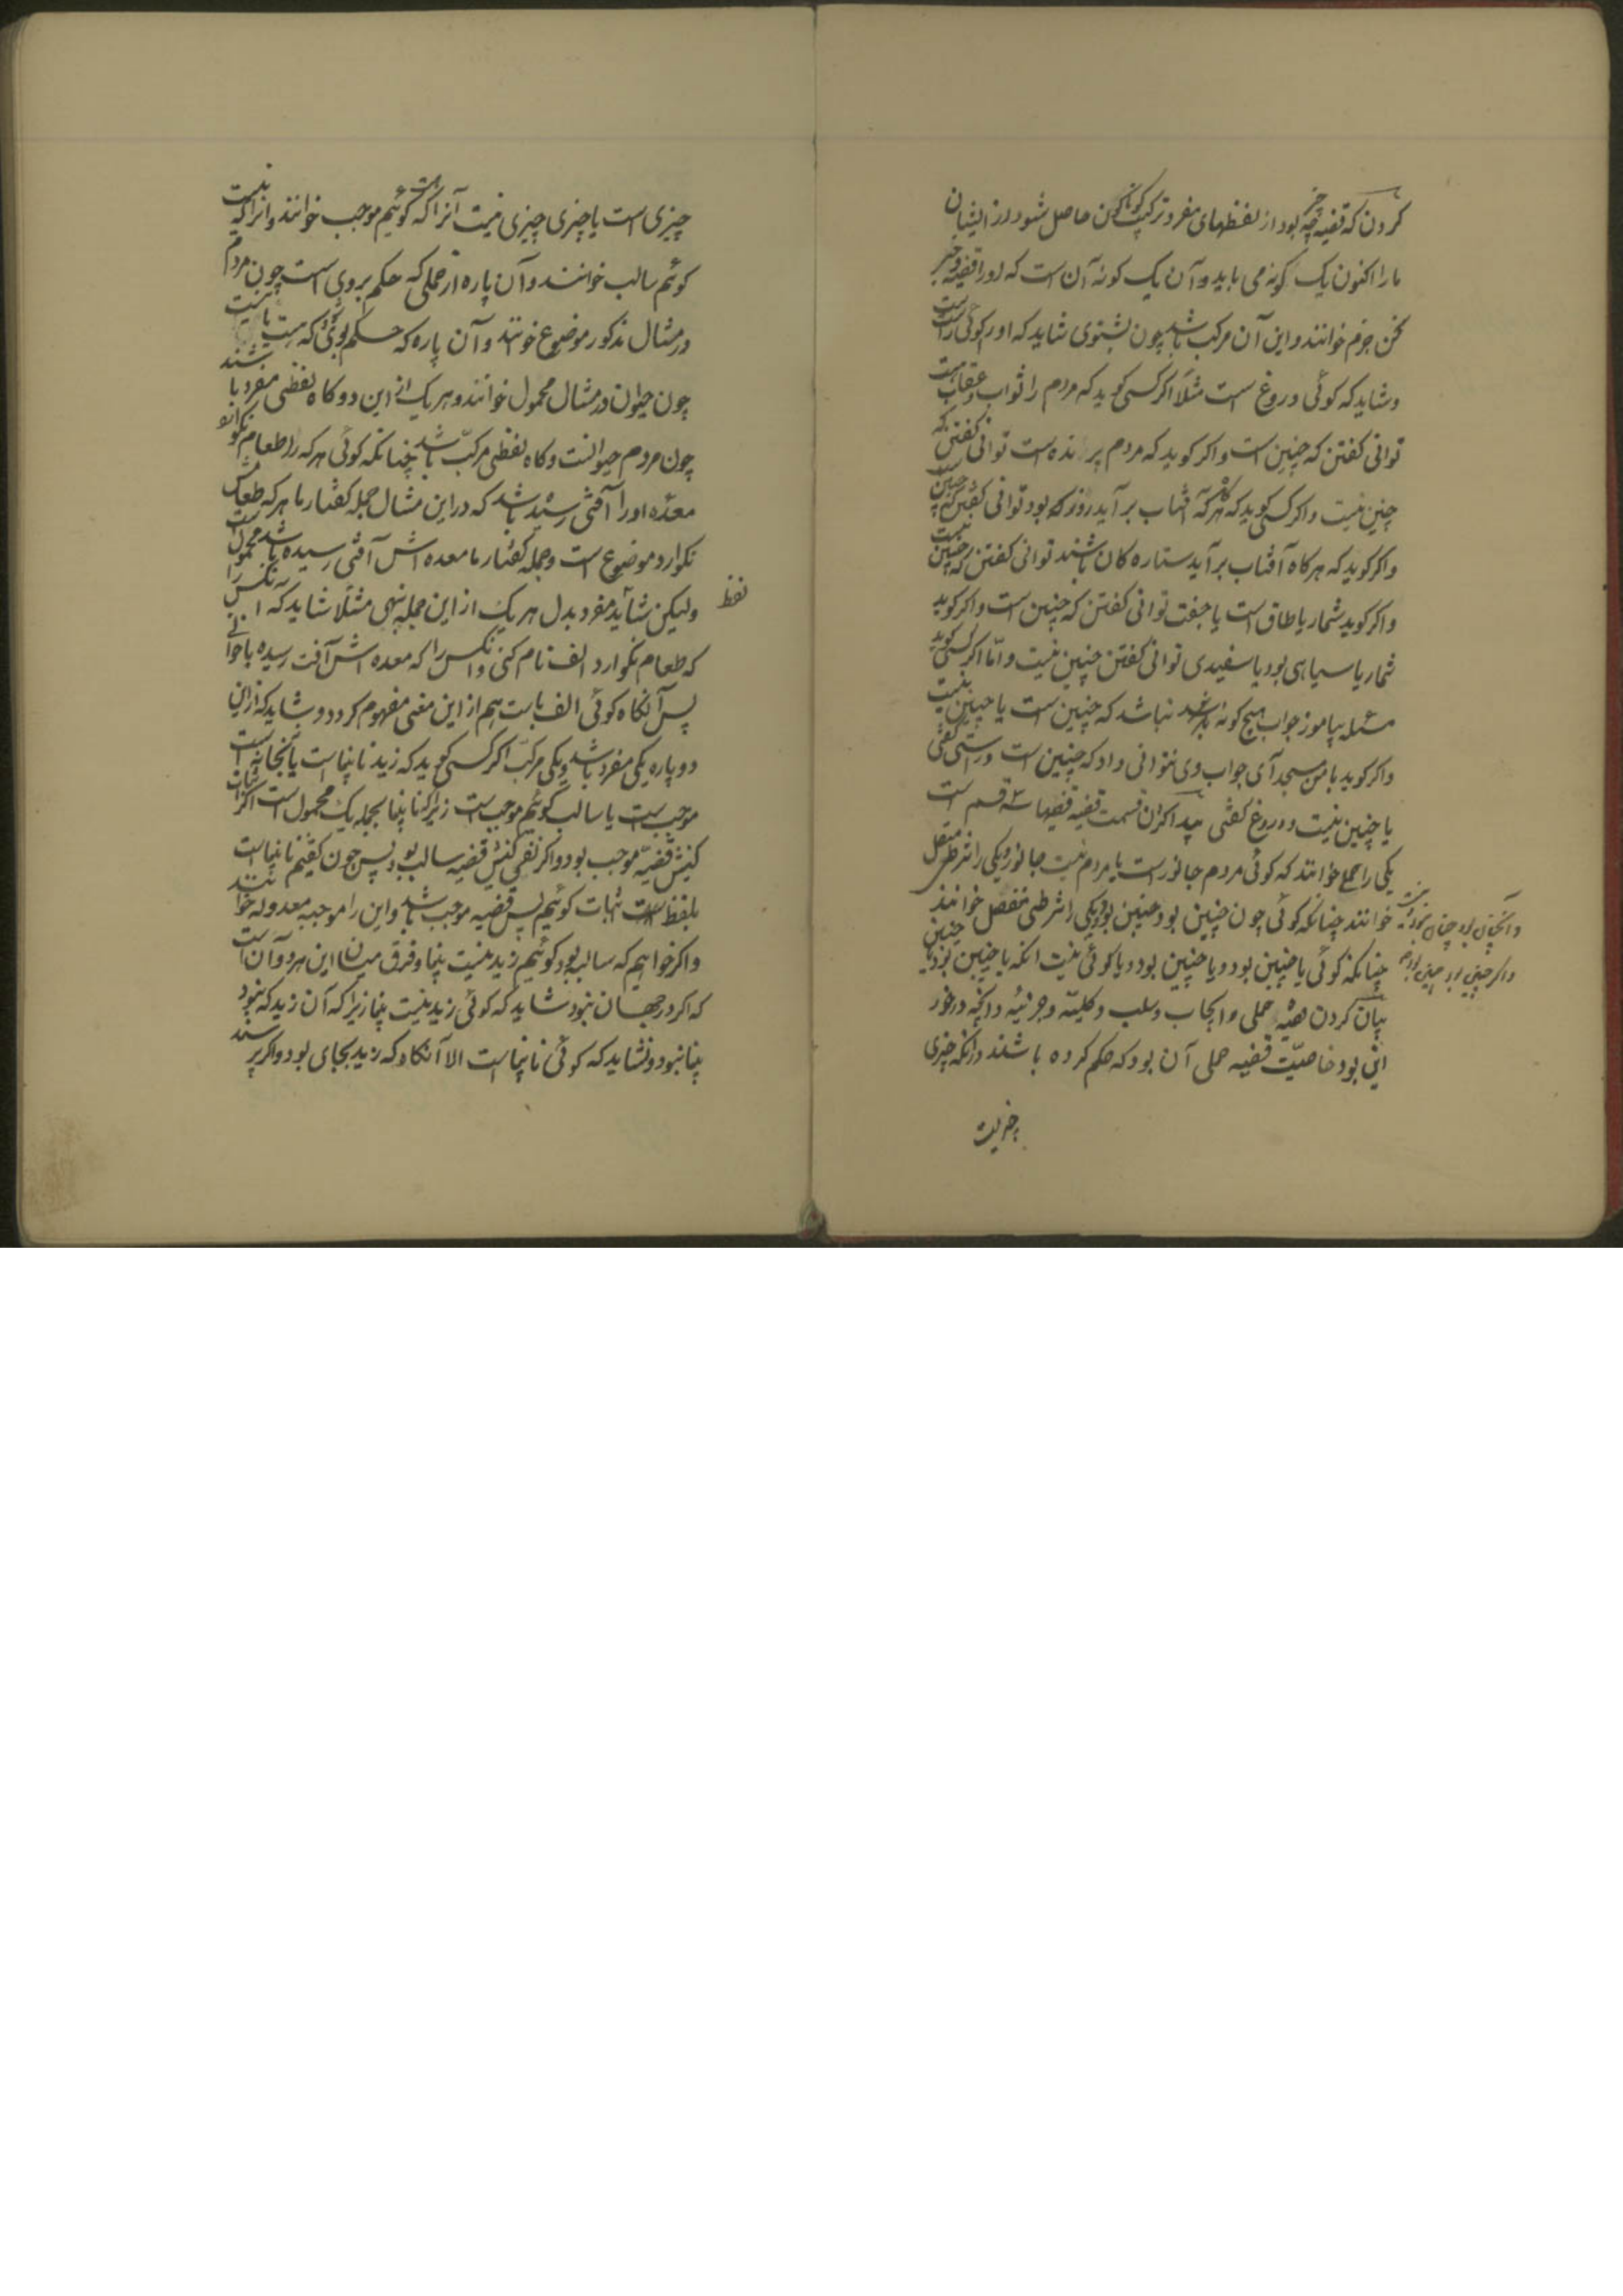 کردن که قضیه چه چیز بود از لفظهای مفرد ترکیب گوناگون حاصل شود از ایشان
ما را اکنون یک گونه می باید و آن یک گونه آن است که او را قضیه و خبر
سخن جزم خوانند و این آن مرکب باشد چون بشنوی شاید که او را گوئی راست است
و شاید که گوئی دروغ است مثلا اگر کسی گوید که مردم را ثواب و عقاب است
توانی گفتن که چنین است و اگر گوید که مردم پرنده است توانی گفتن که
چنین نیست و اگر کسی گوید که هر گاه که آفتاب بر آید روز بود توانی گفتن که چنین است
و اگر گوید که هر گاه آفتاب بر آید ستاره گان باشند توانی گفتن که چنین نیست
و اگر گوید شمار یا طاق است یا جفت توانی گفتن که چنین است و اگر گوید
شمار یا سیاهی بود یا سفیدی توانی گفتن چنین نیست و امّا اگر کسی گوید
مسئله بیاموز جواب هیچ گونه نباشد که چنین است یا چنین نیست
و اگر گوید با من بمسجد آی جواب وی نتوانی داد که چنین است و راستی گفتی
یا چنین نیست و دروغ گفتی پیدا کردن قسمت قضیه قضیها سه قسم است
یکی را حملی خوانند که گوئی مردم جانور است یا مردم نیست جانور و یکی را شرطی متصل
خوانند چنانکه گوئی چون چنین بود چنین بود و یکی را شرطی منفصل خوانند
چنانکه گوئی یا چنین بود و یا چنین بود و یا گوئی نیست انکه یا چنین بود یا چنین
بیان کردن قضیه حملی و ایجاب و سلب و کلیّه و جزئیه و آنچه در خور
این بود خاصیّت قضیه حملی آن بود که حکم کرده باشند در آنکه چیزی
چیزیست
چیزی است یا چیزی چیزی نیست آنرا که گوئیم هست موجب خوانند و انرا که نیست
گوئیم سالب خوانند و آن پاره از حملی که حکم بروی است چون مردم
در مثال مذکور موضوع خوانند و آن پاره که حکم بوی که هست یا نیست
چون حیوان در مثال محمول خوانند و هر یک از این دو گاه لفظی مفرد باشند
چون مردم حیوانست و گاه لفظی مرکّب باشد چنانکه گوئی هر که را طعام نگوارد
معده او را آفتی رسیده باشد که در این مثال جمله گفتار ما هر که طعامش
نگوارد موضوع است و جمله گفتار ما معده اش آفتی رسیده باشد محمول است
ولیکن شاید مفرد بدل هر یک از این جمله بنهی مثلا شاید که انکس را
لفظ
که طعام نگوارد الف نام کنی و انکس را که معده اش آفت رسیده با خوانی
پس آنگاه گوئی الف با است هم از این معنی مفهوم گردد و شاید که از این
دو پاره یکی مفرد باشد و یکی مرکّب اگر کسی گوید که زید نابینا است یا
موجب است یا سالب گوئیم موجب است زیرا که نابینا بجمله یک محمول است اگر اثبات
کنیش قضیّه موجب بود و اگر نفی کنیش قضیه سالب بود پس چون گفتیم نابینا است
بلفظ است اثبات گوئیم پس قضیه موجب باشد و این را موجبه معدوله خوانند
و اگر خواهیم که سالب بود گوئیم زید نیست بینا و فرق میان این هر دو آن است
که اگر در جهان نبود شاید که گوئی زید نیست بینا زیرا که آن زید که نبود
بینا نبود و نشاید که گوئی نابینا است الا آنگاه که زید بجای بود و اگر پرسند